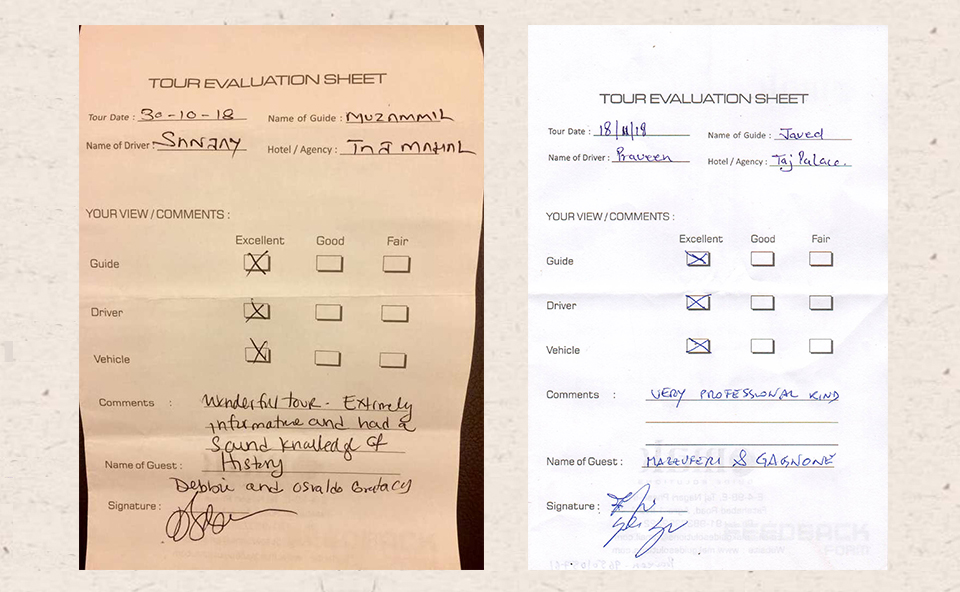 TOUR EVALUATION SHEET
Tour Date : 30-10-18 Name of Guide : MUZAMMIL
Name of Driver : SANJAY Hotel / Agency : TAJ MAHAL
YOUR VIEW / COMMENTS :
Excellent Good Fair
Guide
Driver
Vehicle
Comments : Wonderful tour - Extremly
informative and had a
Sound knowledge of
History
Name of Guest :
Debbie and Osvaldo
Signature :
TOUR EVALUATION SHEET
Tour Date : 18/11/18 Name of Guide : Javed
Name of Driver : Praveen Hotel / Agency : Taj Palace.
YOUR VIEW / COMMENTS :
Excellent Good Fair
Guide
Driver
Vehicle
Comments : VERY PROFESSIONAL KIND
Name of Guest : MAZZUFERI & GAGNONE
Signature :
FEEDBACK
FORM